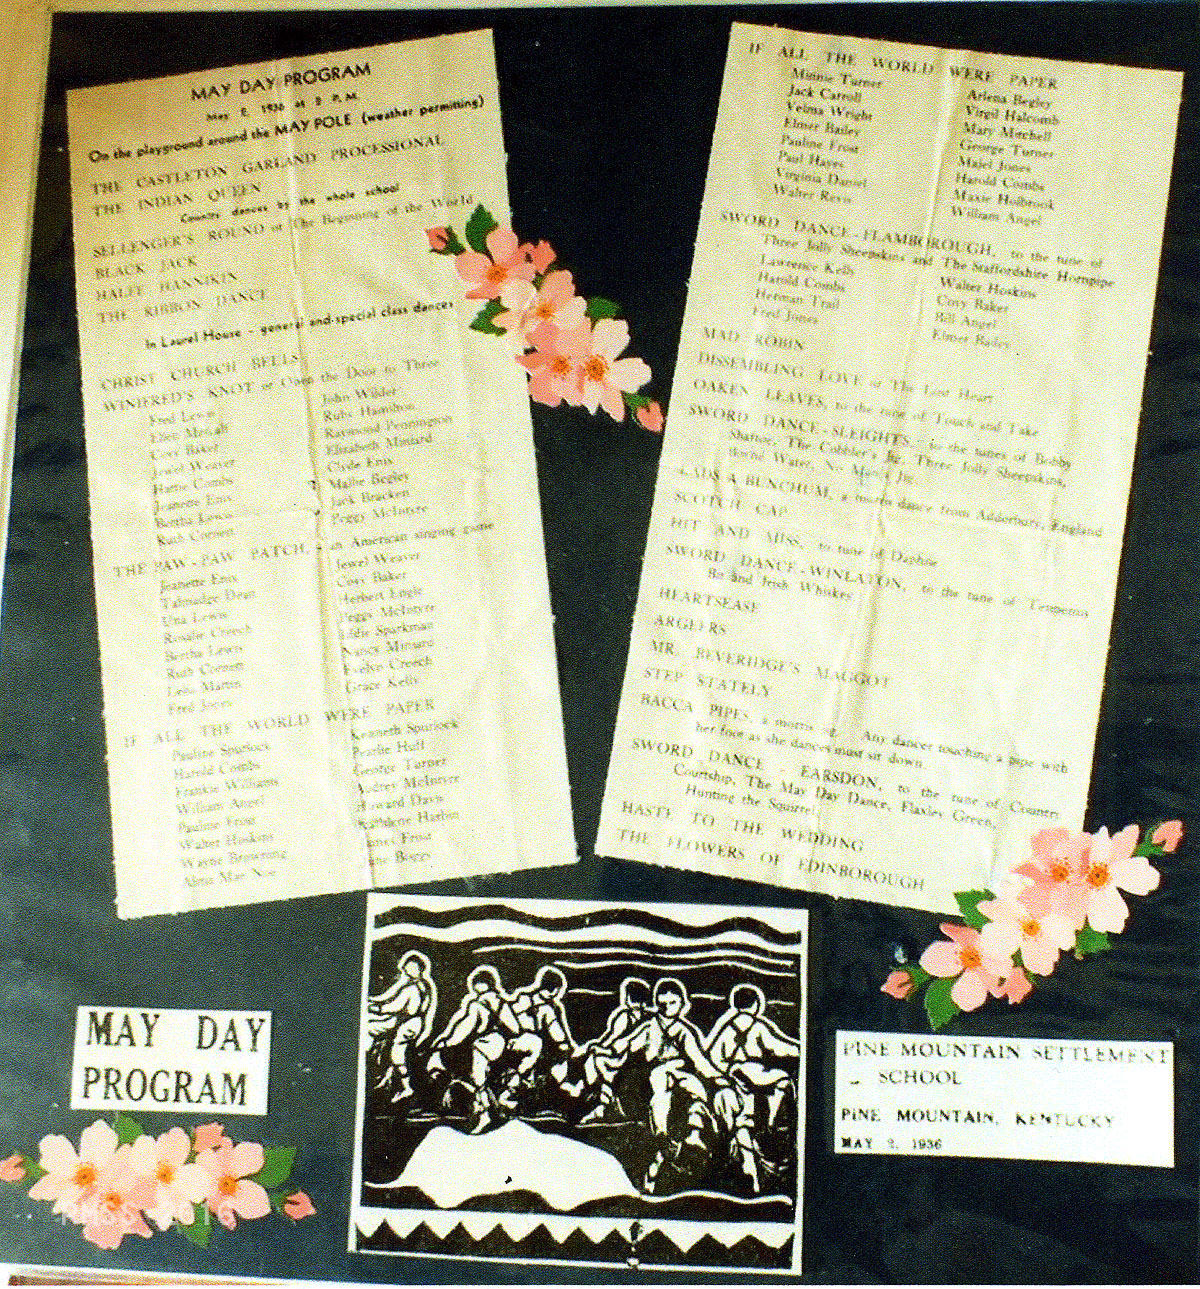 MAY DAY PROGRAM
May 2, 1936 at 2 P. M.
On the playground around the MAY POLE (weather permitting)
THE CASTLETON GARLAND PROCESSIONAL
THE INDIAN QUEEN
Country dances by the whole school
SELLENGER'S ROUND or The Beginning of the World
BLACK JACK
HALFE HANNIKIN
THE RIBBON DANCE
In Laurel House - general and special class dances
CHRIST CHURCH BELLS
WINIFRED'S KNOT or Open the Door to Three
Fred Lewis
John Wilder
Ellen Metcalf
Ruby Hamilton
Covy Baker
Raymond Pennington
Jewel Weaver
Elizabeth Miniard
Harrie Combs
Clyde Enix
Jeanette Enix
Mallie Begley
Bertha Lewis
Jack Bracken
Ruth Cornett
Peggy McIntyre
THE PAW-PAW PATCH, - an American singing game
Jeanette Enix
Jewel Weaver
Talmadge Dean
Covy Baker
Una Lewis
Herbert Engle
Rosalie Creech
Peggy McIntyre
Bertha Lewis
Eddie Sparkman
Ruth Cornett
Nancy Miniard
Lelia Martin
Evelyn Creech
Fred Jones
Grace Kelly
IF ALL THE WORLD WERE PAPER
Pauline Spurlock
Kenneth Spurlock
Harold Combs
Pearlie Huff
Frankie Williams
George Turner
William Angel
Audrey McIntyre
Pauline Frost
Howard Davis
Walter Hoskins
Kathlene Harbin
Wayne Browning
James Frost
Alma Mae Noe
June Boggs
IF ALL THE WORLD WERE PAPER
Minnie Turner
Arlena Begley
Jack Carroll
Virgil Halcomb
Velma Wright
Mary Mitchell
Elmer Bailey
George Turner
Pauline Frost
Maiel Jones
Paul Hayes
Harold Combs
Virginia Daniel
Maxie Holbrook
Walter Revis
William Angel
SWORD DANCE-FLAMBOROUGH, to the tune of
Three Jolly Sheepskins and The Staffordshire Hornpipe
Lawrence Kelly
Walter Hoskins
Harold Combs
Covy Baker
Herman Trail
Bill Angel
Fred Jones
Elmer Bailey
MAD ROBIN
DISSEMBLING LOVE or The Lost Heart
OAKEN LEAVES, to the tune of Touch and Take
SWORD DANCE-SLEIGHTS, to the tunes of Bobby
Shaftoe, The Cobbler's Jig, Three Jolly Sheepskins,
Borne Water, No Man's Jig
LADS A BUNCHUM, a morris dance from Adderbury, England
SCOTCH CAP
HIT AND MISS, to tune of Daphne
SWORD DANCE-WINLATON, to the tune of Tenpenny
Bit and Irish Whiskey
HEARTSEASE
ARGEERS
MR. BEVERIDGE'S MAGGOT
STEP STATELY
BACCA PIPES, a morris jig. Any dancer touching a pipe with
her foot as she dances must sit down.
SWORD DANCE - EARSDON, to the tune of Country
Courtship, The May Day Dance, Flaxley Green,
Hunting the Squirrel
HASTE TO THE WEDDING
THE FLOWERS OF EDINBOROUGH
MAY DAY
PROGRAM
PINE MOUNTAIN SETTLEMENT
SCHOOL
PINE MOUNTAIN, KENTUCKY
MAY 2, 1936
PMSS 2016